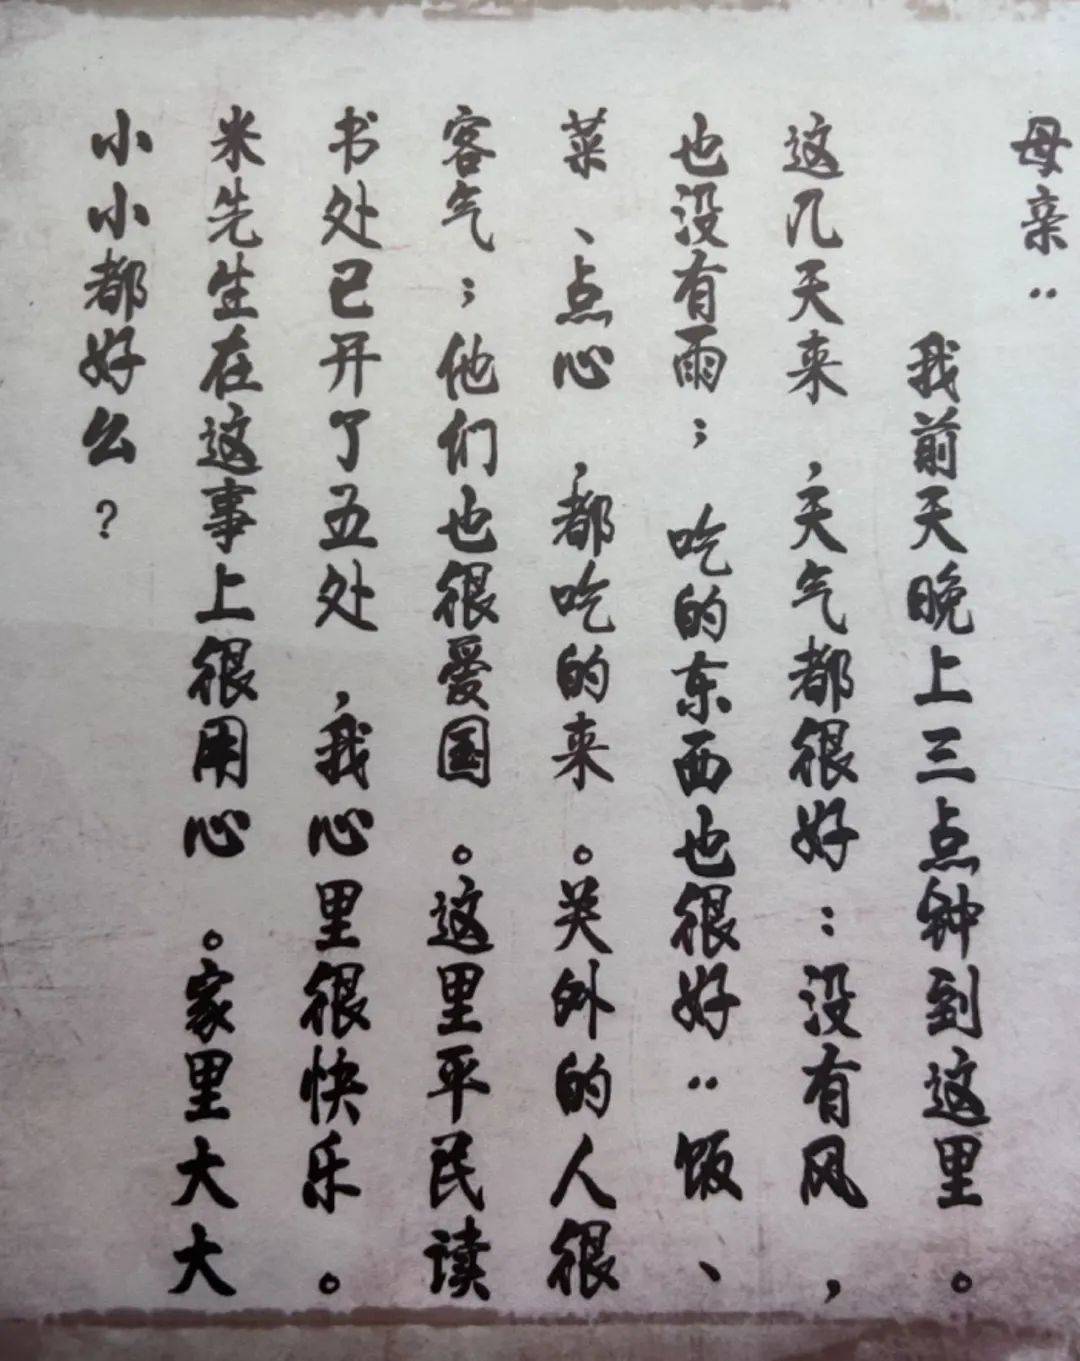 母亲：
我前天晚上三点钟到这里。
这几天来，天气都很好：没有风，
也没有雨；吃的东西也很好：饭、
菜、点心，都吃的来。关外的人很
客气；他们也很爱国。这里平民读
书处已开了五处，我心里很快乐。
米先生在这事上很用心。家里大大
小小都好么？